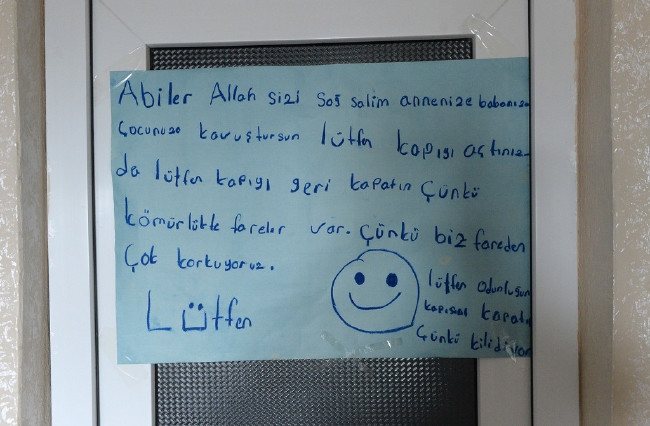 Abiler Allah sizi sağ salim annenize babanıza
çocunuza kavuştursun lütfen kapıyı açtınız
da lütfen kapıyı geri kapatın Çünkü
kömürlükte fareler var. Çünkü biz fareden
Çok korkuyoruz.
Lütfen
lütfen odunluğun
kapısını kapatı
Çünkü kilidi var